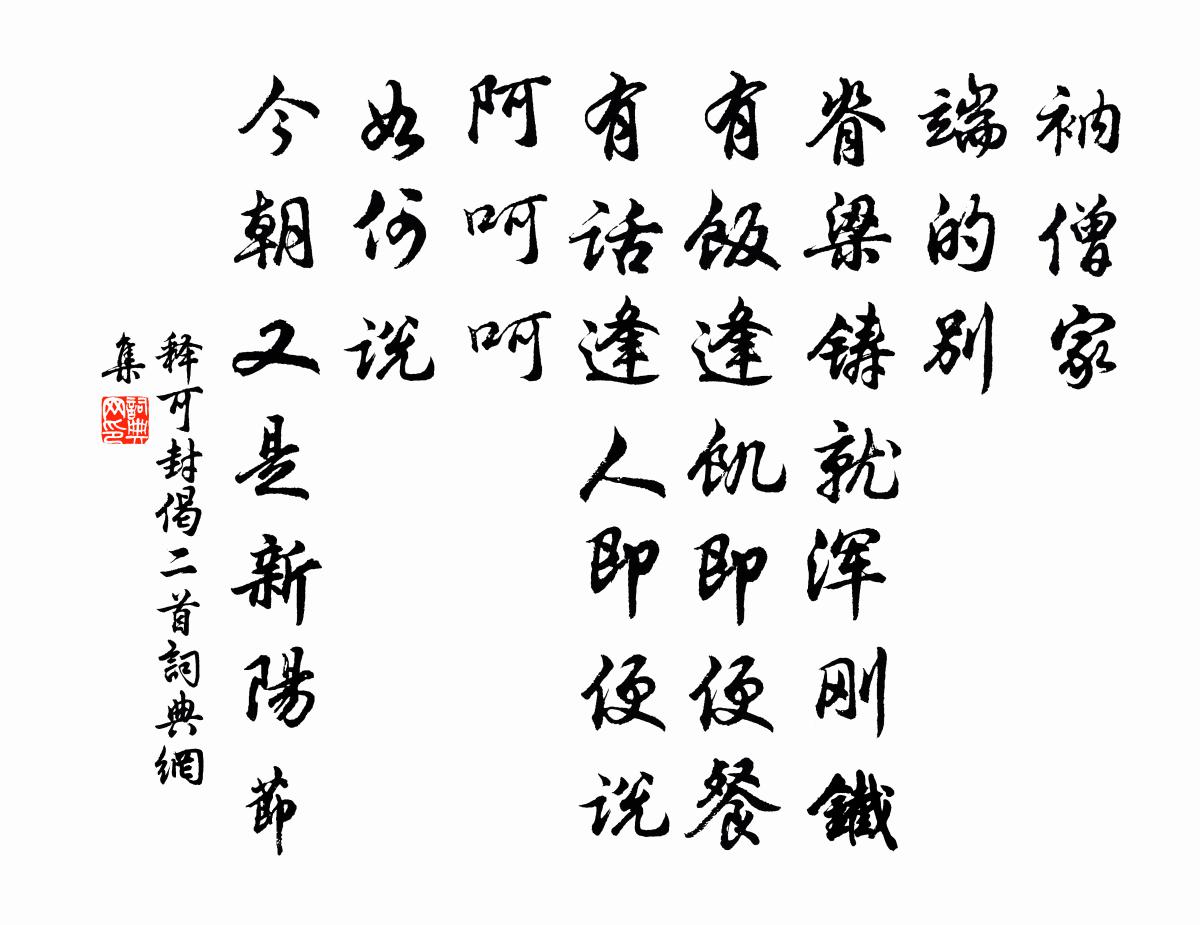 衲僧家
端的别
脊梁鋳就浑刚鐵
有飯逢飢即便餐
有话逢人即便说
阿呵呵
如何说
今朝又是新陽節
释可封偈二首詞典網
集
詞典网印